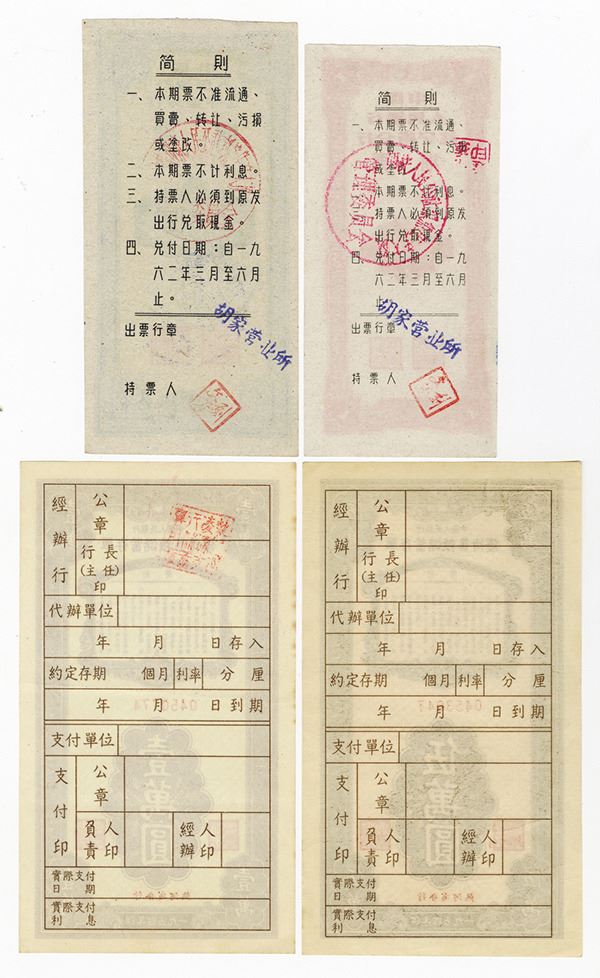 简 则
一、本期票不准流通、
買賣、转让、污損
或塗改。
二、本期票不计利息。
三、持票人必須到原发
出行兑取現金。
四、兑付日期：自一九
六二年三月至六月
止。
出票行章
胡家营业所
持票人
简 则
一、本期票不准流通、
買賣、转让、污損
或塗改
本期票不计利息。
持票人必須到原发
出行兑取現金。
四、兑付日期：自一
六二年三月至六月
止
管理委員会
出票行章
胡家营业所
持票人
經辦行
公章
行長
(主任)
印
代辦單位
年 月 日存入
約定存期 個月 利率 分 厘
年 月 日到期
支付單位
支付印
公章
負責人印
經辦人印
壹萬圓
實際支付
日期
實際支付
利息
經辦行
公章
行長
(主任)
印
代辦單位
年 月 日存入
約定存期 個月 利率 分 厘
年 月 日到期
支付單位
支付印
公章
負責人印
經辦人印
伍萬圓
實際支付
日期
實際支付
利息